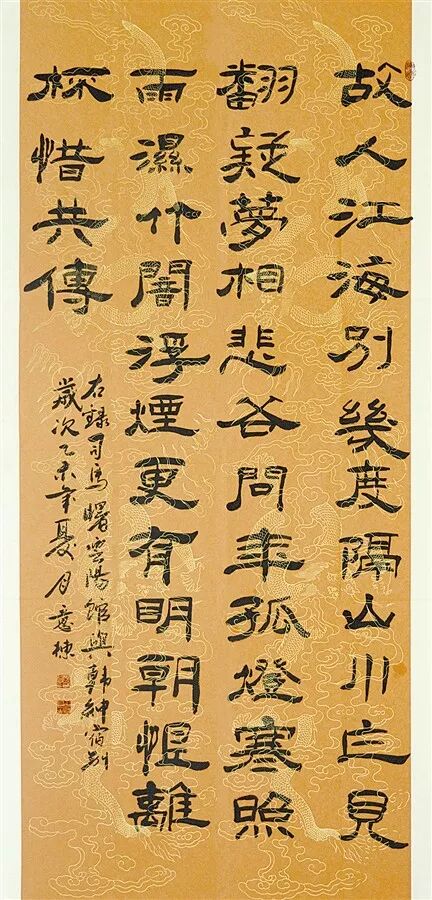 故人江海別幾度隔山川乍見
翻疑夢相悲各問年孤燈寒照
雨濕竹闇浮煙更有明朝恨離
杯惜共傳
右錄司馬曙雲陽館與韓紳宿別
歲次乙未年夏月意棟